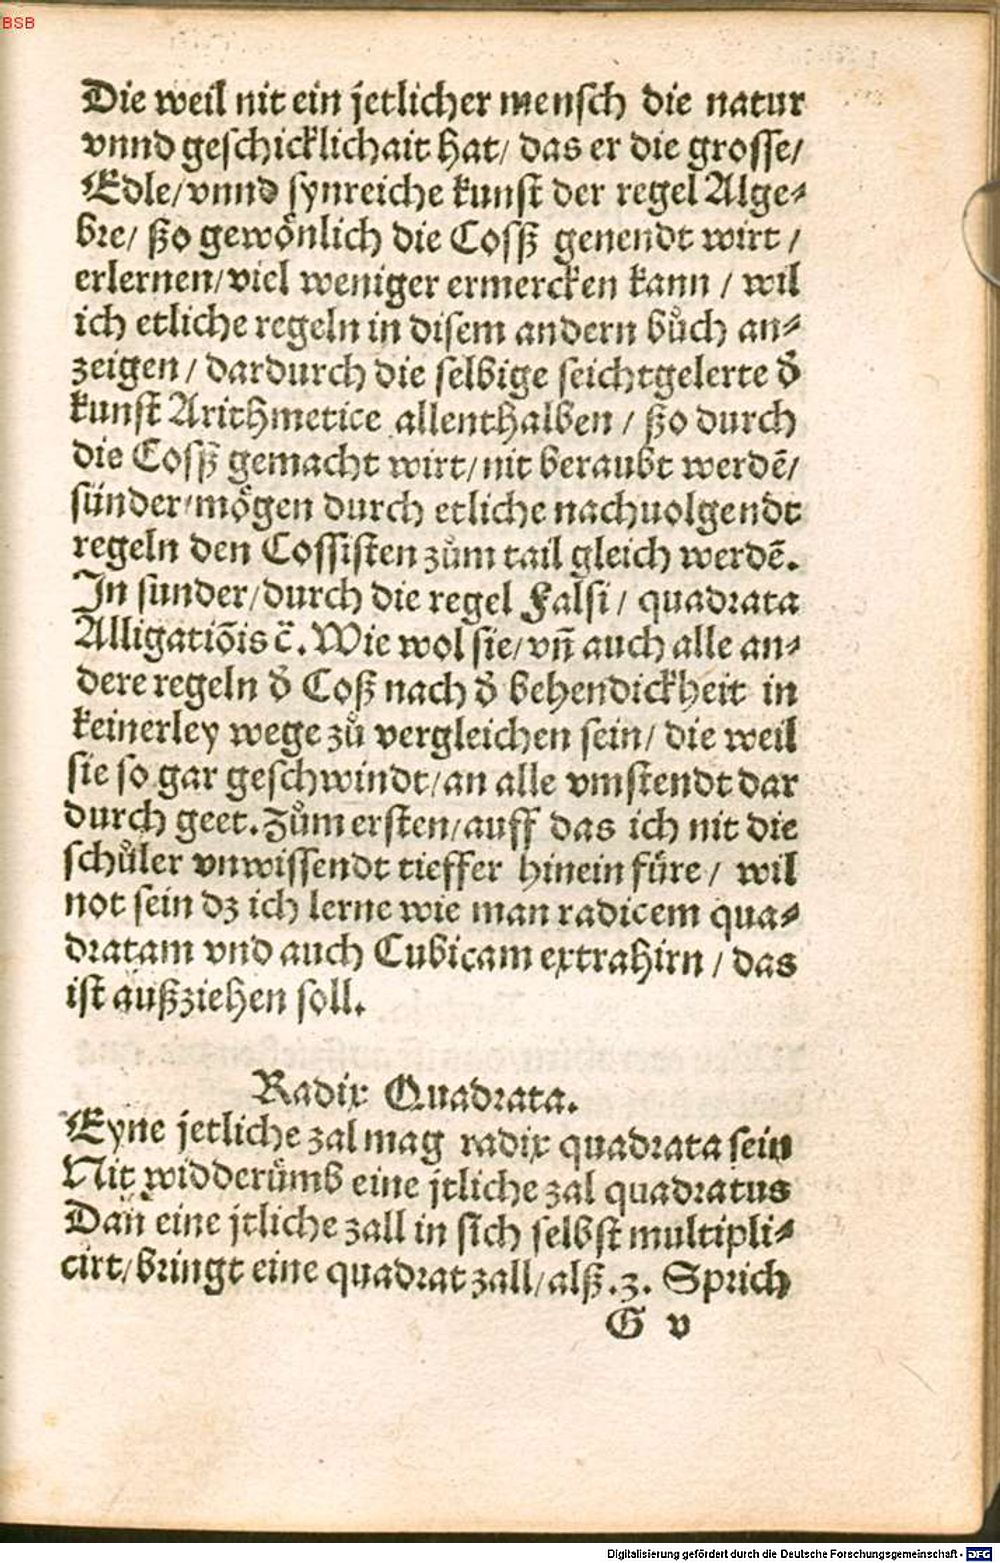 BSB
Die weil nit ein jetlicher mensch die natur
vnnd geschicklichait hat/ das er die grosse/
Edle/ vnnd synreiche kunst der regel Alge⸗
bre/ ßo gewönlich die Cosß genendt wirt /
erlernen/ viel weniger ermercken kann / wil
ich etliche regeln in disem andern bůch an⸗
zeigen / dardurch die selbige seichtgelerte d̄
kunst Arithmetice allenthalben / ßo durch
die Cosß gemacht wirt/ nit beraubt werdē/
sünder/ mögen durch etliche nachuolgendt
regeln den Cossisten zům tail gleich werdē.
In sunder/ durch die regel Falsi / quadrata
Alligatiōis c̄. Wie wol sie/ vn̄ auch alle an⸗
dere regeln d̄ Coß nach d̄ behendickheit in
keinerley wege zů vergleichen sein/ die weil
sie so gar geschwindt/ an alle vmstendt dar
durch geet. Zům ersten/ auff das ich nit die
schůler vnwissendt tieffer hinein füre / wil
not sein dz ich lerne wie man radicem qua⸗
dratam vnd auch Cubicam extrahirn / das
ist außziehen soll.
Radix Quadrata.
Eyne jetliche zal mag radix quadrata sein
Nit widderümb eine jtliche zal quadratus
Dan̄ eine jtliche zall in sich selbst multipli⸗
cirt/ bringt eine quadrat zall/ alß .3. Sprich
G v
Digitalisierung gefördert durch die Deutsche Forschungsgemeinschaft - DFG